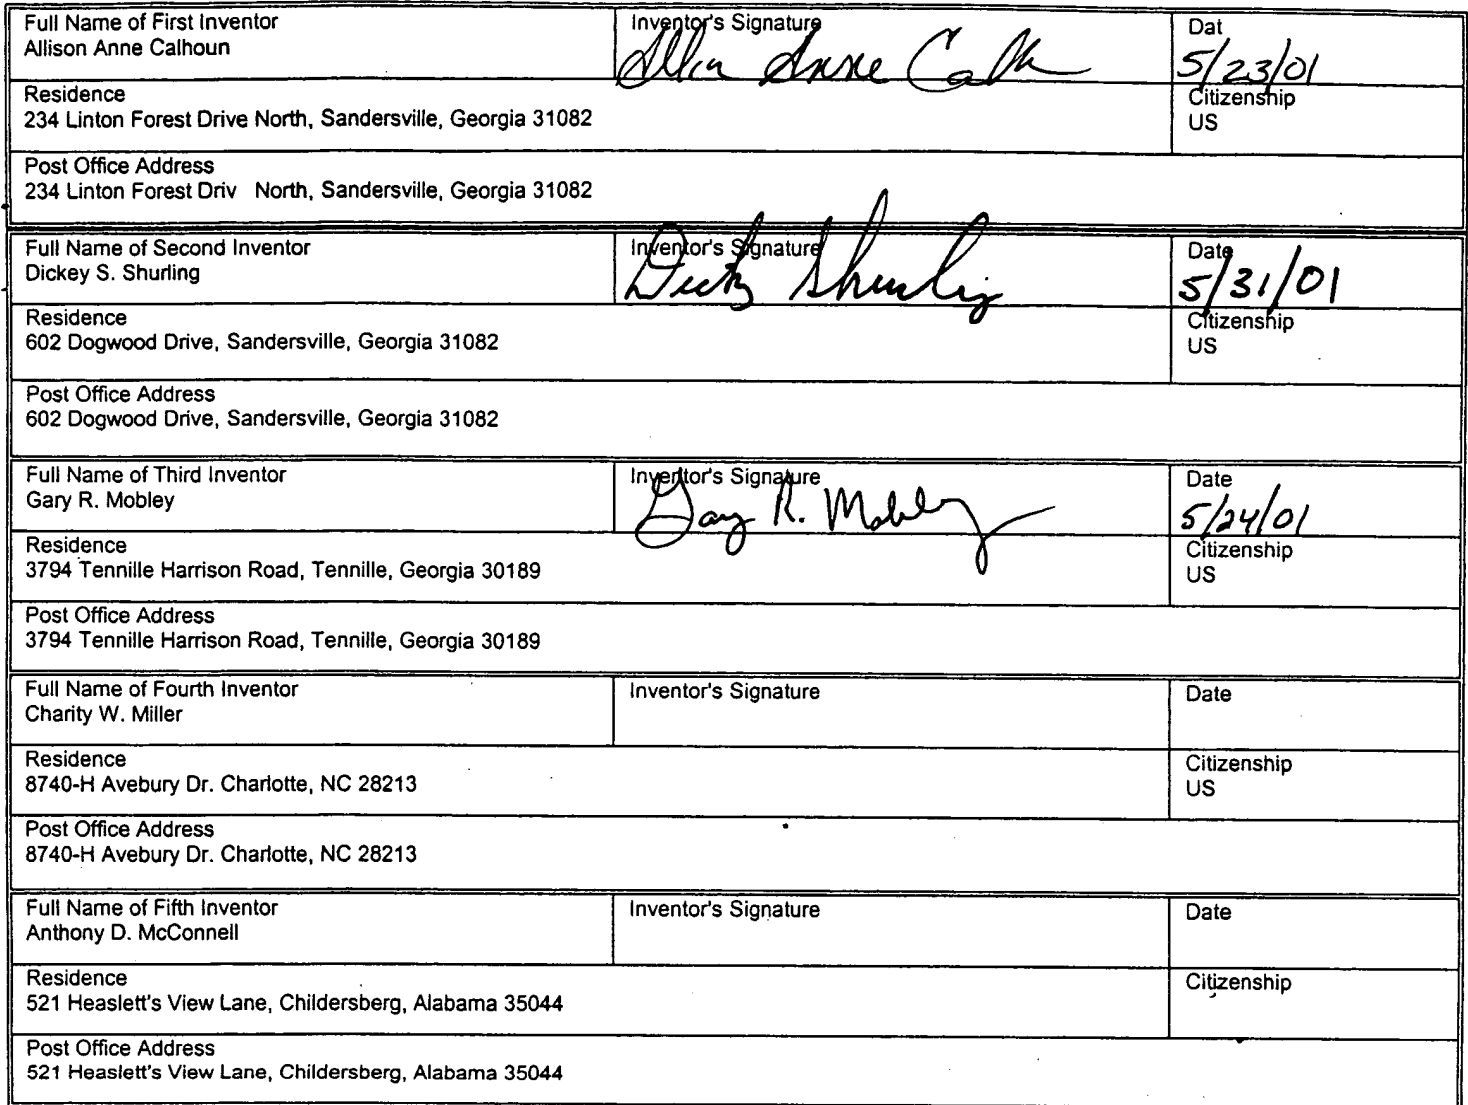 Full Name of First Inventor
Allison Anne Calhoun
Inventor's Signature
Allison Anne Calh
Dat
5/23/01
Residence
234 Linton Forest Drive North, Sandersville, Georgia 31082
Citizenship
US
Post Office Address
234 Linton Forest Driv North, Sandersville, Georgia 31082
Full Name of Second Inventor
Dickey S. Shurling
Inventor's Signature
Dickey Shurling
Date
5/31/01
Residence
602 Dogwood Drive, Sandersville, Georgia 31082
Citizenship
US
Post Office Address
602 Dogwood Drive, Sandersville, Georgia 31082
Full Name of Third Inventor
Gary R. Mobley
Inventor's Signature
Gary R. Mobley
Date
5/24/01
Residence
3794 Tennille Harrison Road, Tennille, Georgia 30189
Citizenship
US
Post Office Address
3794 Tennille Harrison Road, Tennille, Georgia 30189
Full Name of Fourth Inventor
Charity W. Miller
Inventor's Signature
Date
Residence
8740-H Avebury Dr. Charlotte, NC 28213
Citizenship
US
Post Office Address
8740-H Avebury Dr. Charlotte, NC 28213
Full Name of Fifth Inventor
Anthony D. McConnell
Inventor's Signature
Date
Residence
521 Heaslett's View Lane, Childersberg, Alabama 35044
Citizenship
Post Office Address
521 Heaslett's View Lane, Childersberg, Alabama 35044